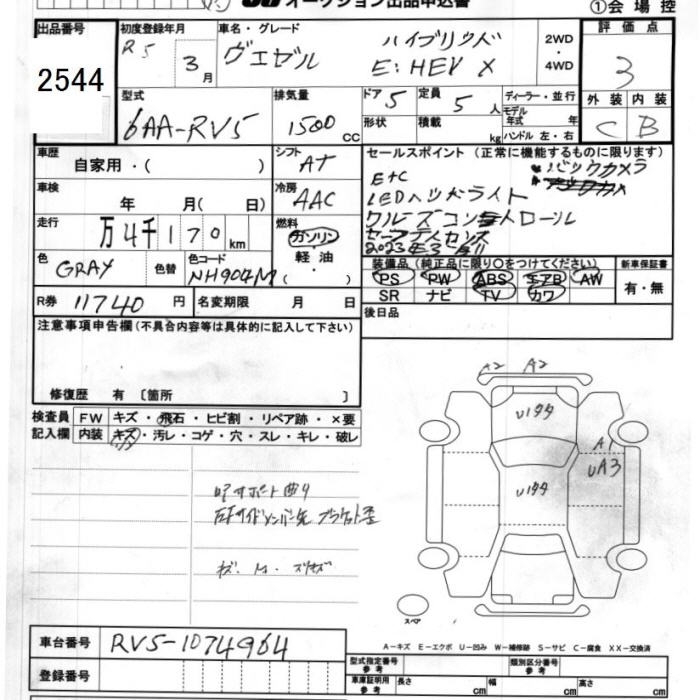 オークション出品申込書
①会 場 控
出品番号
2544
初度登録年月
R5 3月
車名・グレード
ヴェゼル
ハイブリッド
E:HEV X
2WD・4WD
評 価 点
3
外 装 内 装
C B
型式
6AA-RV5
排気量
1500 CC
ドア 5
形状
定員 5 人
積載 kg
ディーラー・並行
モデル年式 年
ハンドル 左・右
車歴
自家用・( )
シフト
AT
車検
年 月( 日)
冷房
AAC
走行
万4千170 km
燃料
ガソリン
軽 油
( ・ )
色
GRAY
色替
色コード
NH904M
R券 11740 円
名変期限 月 日
セールスポイント (正常に機能するものに限ります)
ETC
バックカメラ
LEDヘッドライト
クルーズコントロール
セーフティセンス
装備品 (純正品に限り○をつけてください)
PS PW ABS エアB AW
SR ナビ TV カワ
新車保証書
有・無
後日品
注意事項申告欄 (不具合内容等は具体的に記入して下さい)
修復歴 有 〔箇所 〕
検査員記入欄
FW キズ・飛石・ヒビ割・リペア跡・×要
内装 キズ・汚レ・コゲ・穴・スレ・キレ・破レ
A2 A2
U1
A1
UA3
U1
スペア
A－キズ E－エクボ U－凹み W－補修跡 S－サビ C－腐食 XX－交換済
車台番号
RV5-1074964
登録番号
型式指定番号 参考
類別区分番号 参考
車庫証明用 参考
長さ cm 幅 cm 高さ cm